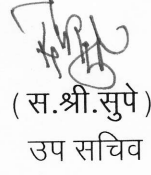 ( स.श्री.सुपे )
उप सचिव